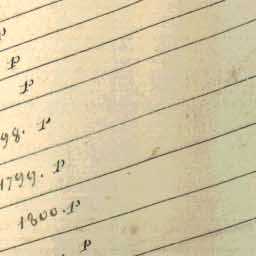 P
P
P
98. P
1799. P
1800. P
. P